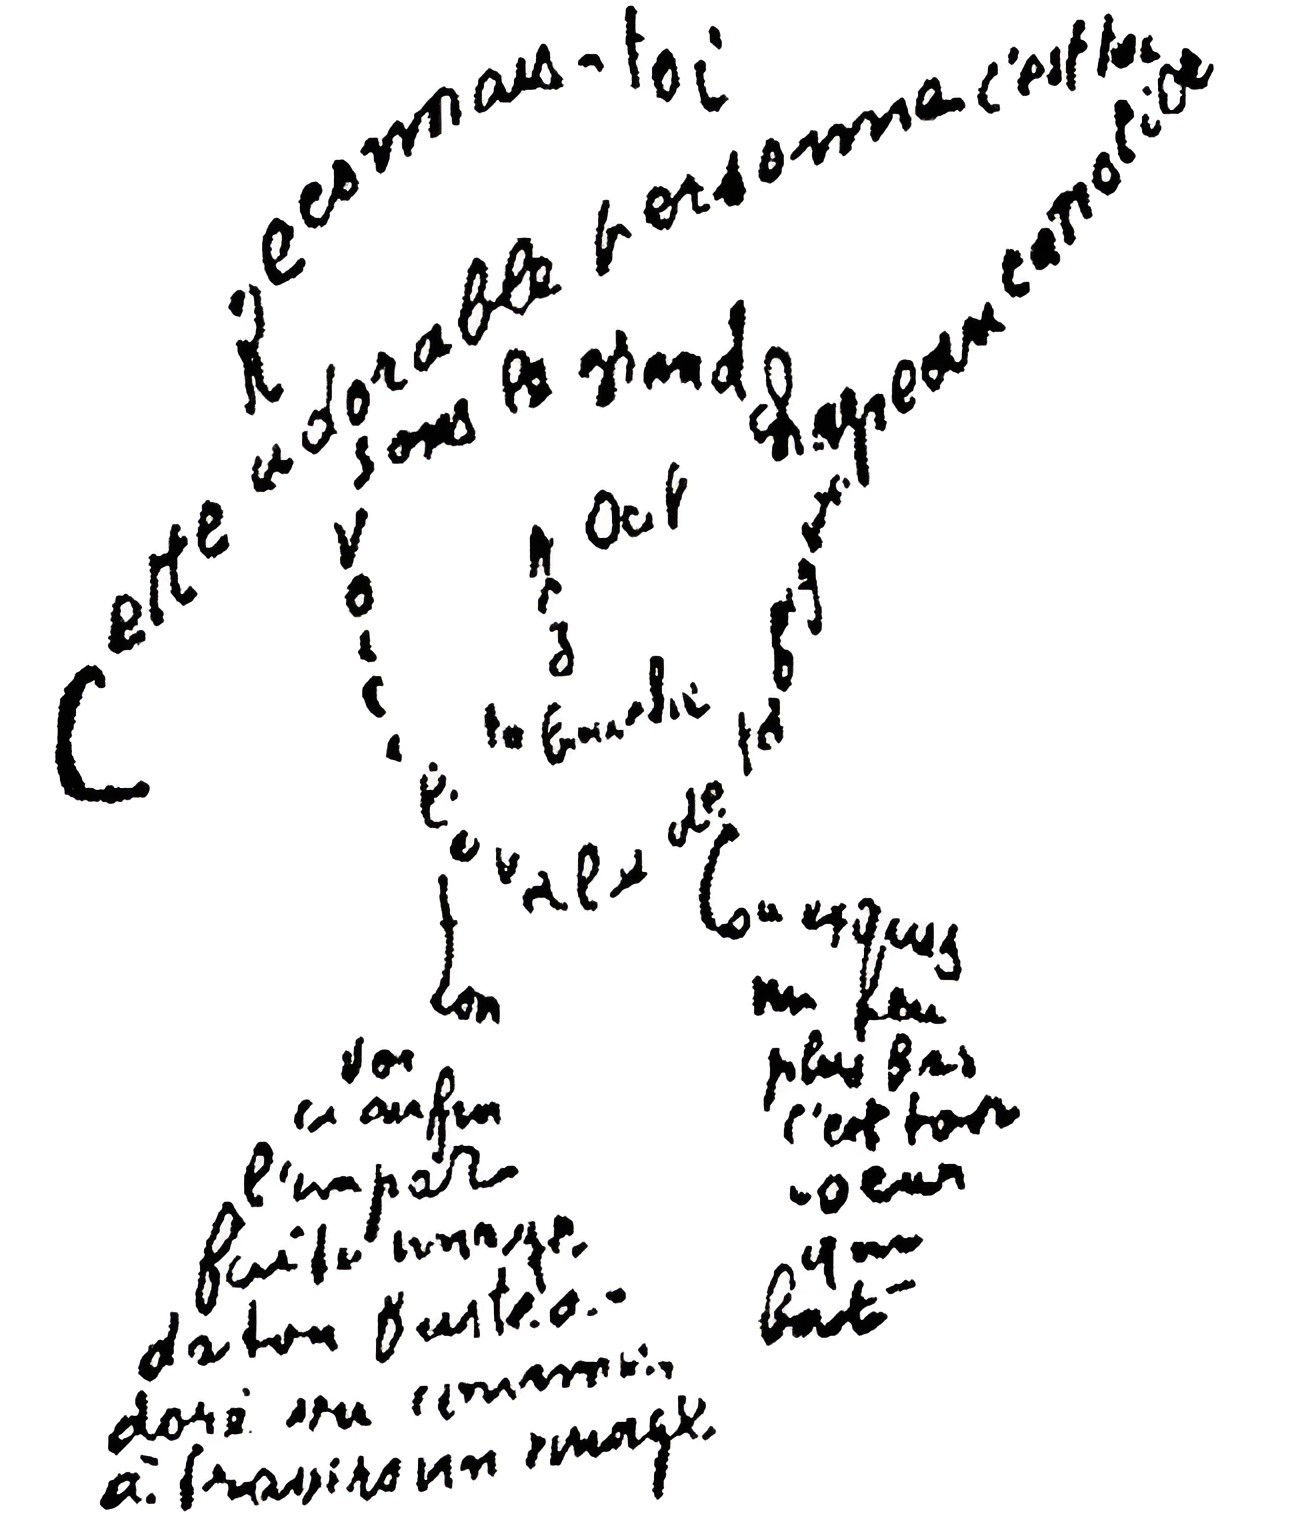 Reconnais-toi
Cette adorable personne c'est toi
sous le grand chapeau canotier
Oeil
Nez
ta bouche
voici l'ovale de ta figure
ton
cou exquis
voi
ci enfin
l'impar
faite image
de ton buste a
doré vu comme
à travers un nuage
un peu
plus bas
c'est ton
coeur
qui
bat